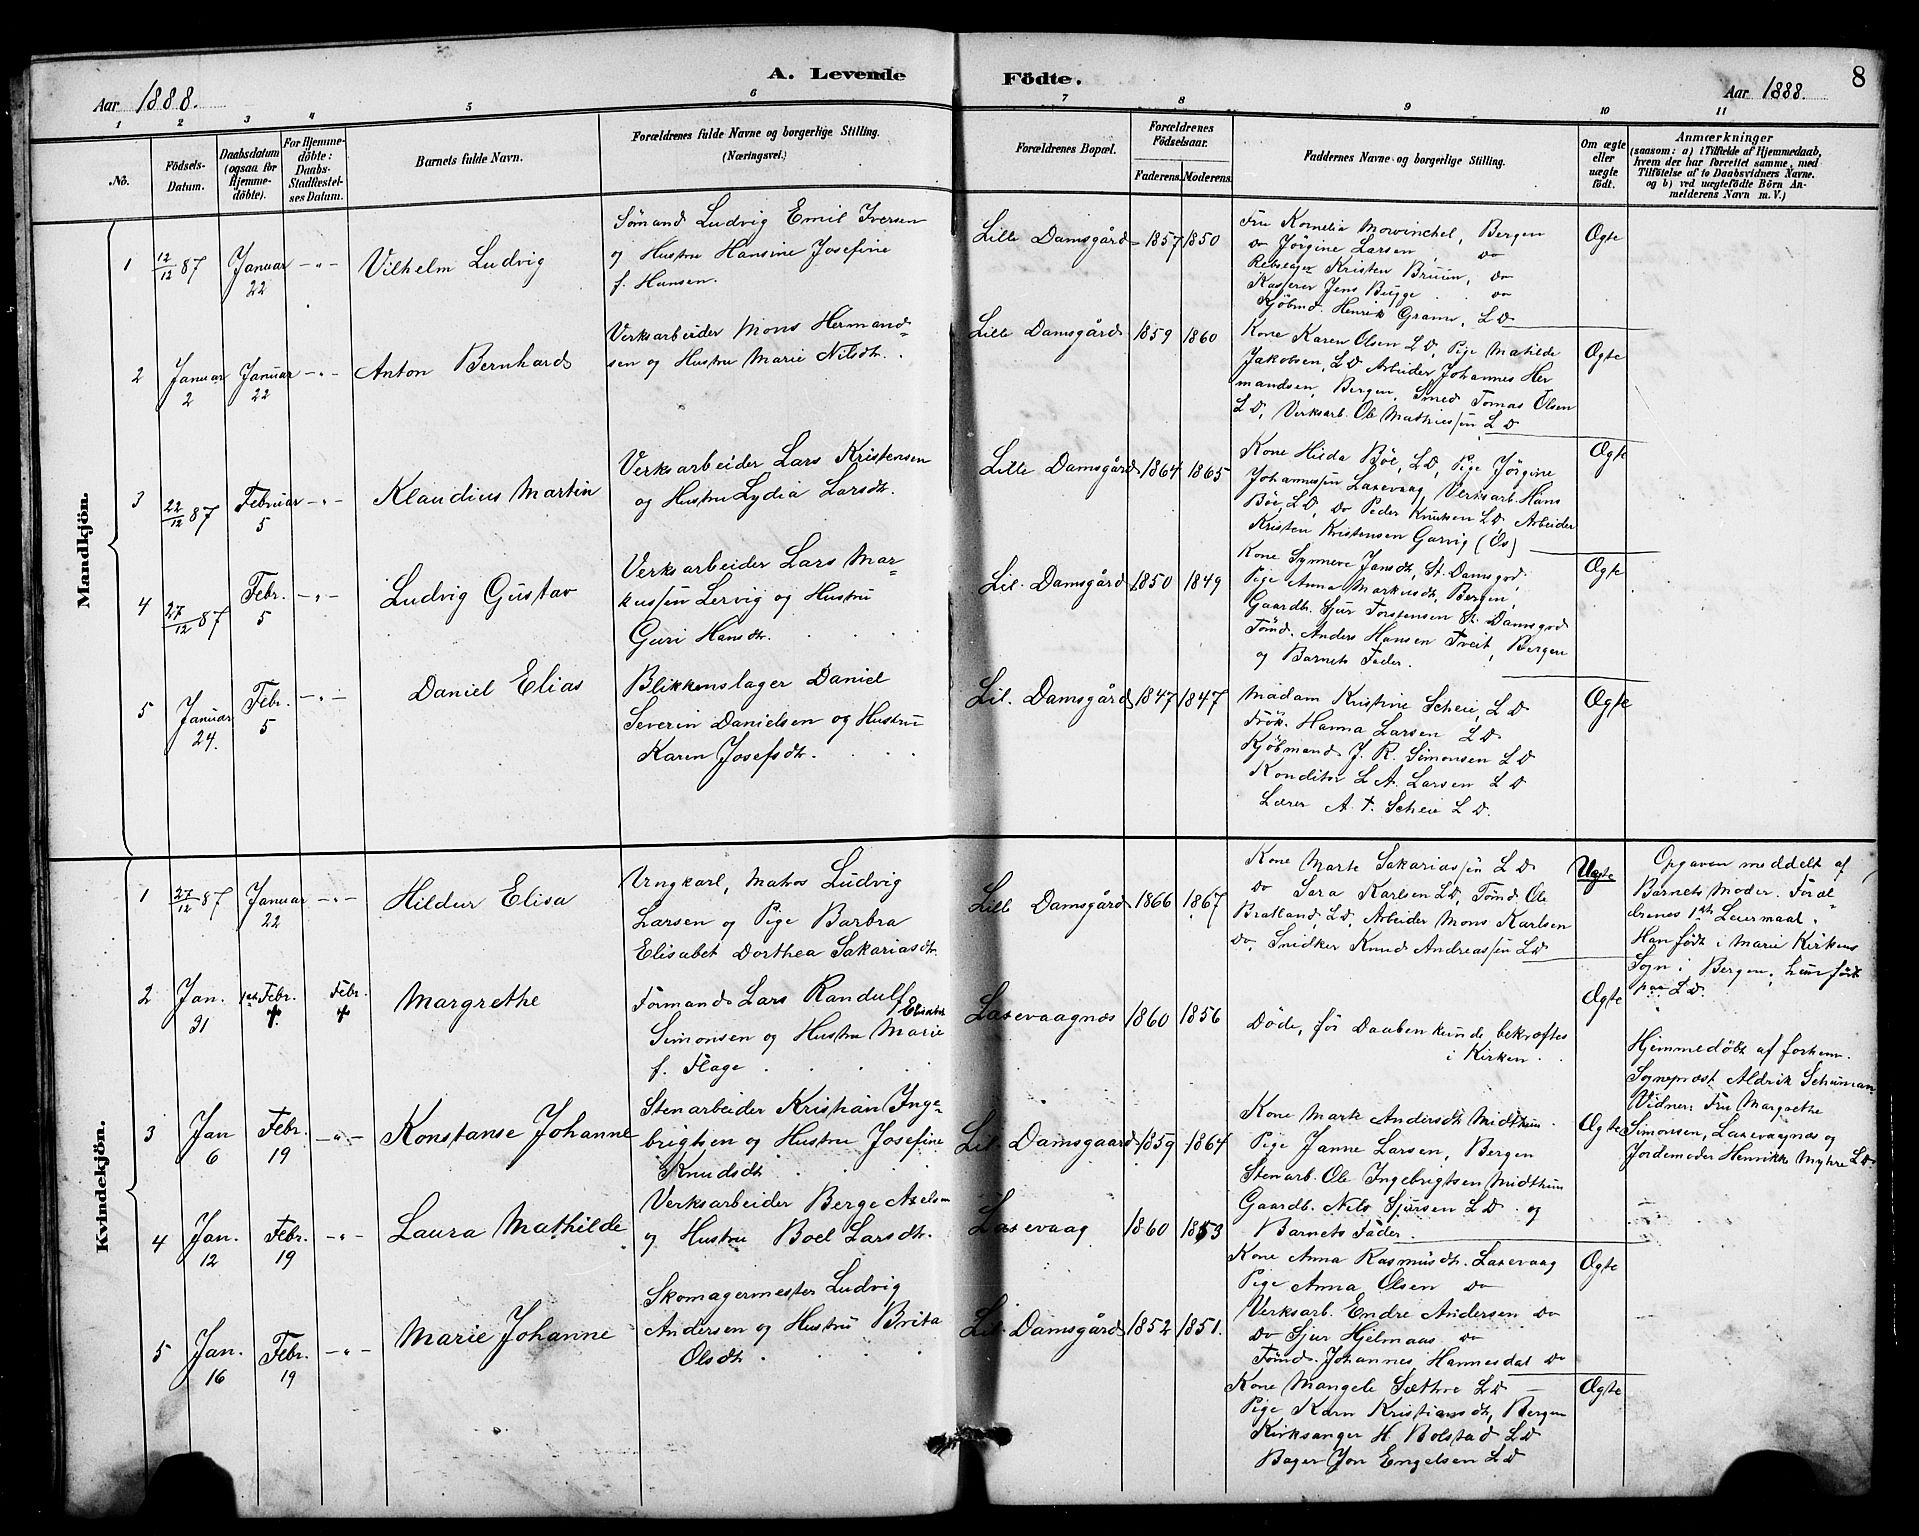 A. Levende Födte.
8
Aar 1888.
Aar 1888.
1 2 3 4 5 6 7 8 9 10 11
No.
Födsels-Datum.
Daabsdatum (ogsaa for Hjemme-döbte).
For Hjemme-döbte: Daabs-Stadfæstel-ses Datum.
Barnets fulde Navn.
Forældrenes fulde Navne og borgerlige Stilling. (Næringsvei.)
Forældrenes Bopæl.
Forældrenes Födselsaar.
Faderens. Moderens.
Faddernes Navne og borgerlige Stilling.
Om ægte eller uægte födt.
Anmærkninger
(saasom: a) i Tilfælde af Hjemmedaab, hvem der har forrettet samme, med Tilföielse af to Daabsvidners Navne. og b) ved uægtefödte Börn Anmelderens Navn m. V.)
Mandkjön.
1 12/12 87 Januar 22 - " - Vilhelm Ludvig
Sömand Ludvig Emil Iversen
og Hustru Hansine Josefine
f. Hansen.
Lille Damsgård 1857 1850
Fru Kornelia Mowinckel, Bergen
do Jörgine Larsen, do
Rebslager Kristen Bruun, do
Kasserer Jens Bugge do
Kjöbmd. Henrik Gram, L D
Ægte
2 Januar 2 Januar 22 - " - Anton Bernhard
Verksarbeider Mons Hermand-
sen og Hustru Marie Nilsdtr.
Lille Damsgård 1859 1860
Kone Karen Olsen L D, Pige Matilde
Jakobsen, L D Arbeider Johannes Her
mandsen, Bergen, Smed Tomas Olsen
L D, Verksarb. Ole Mathiessen L D
Ægte
3 22/12 87 Februar 5 - " - Klaudius Martin
Verksarbeider Lars Kristensen
og Hustru Lydia Larsdtr.
Lille Damsgård 1864 1865
Kone Hilda Böe, L D, Pige Jörgine
Johannessen Laxevaag, Verksarb. Hans
Böe, L D, do Peder Knuksen L D Arbeider
Kristen Kristensen Garvig (Os)
Ægte
4 27/12 87 Febr. 5 - " - Ludvig Gustav
Verksarbeider Lars Mar-
kussen Lervig og Hustru
Guri Hansdtr.
Lil. Damsgård 1850 1849
Kone Synneve Jansdtr, St. Damsgd.
Pige Anna Markusdtr, Bergen,
Gaardb. Sjur Torstensen St. Damsgd
Tömd. Anders Hansen Tveit, Bergen
og Barnets Fader.
Ægte
5 Januar 24. Febr. 5 - " - Daniel Elias
Blikkenslager Daniel
Severin Danielsen og Hustru
Karen Josefsdtr.
Lil. Damsgård 1847 1847
Madam Kristine Scheie, L D
Frök. Hanna Larsen L D
Kjöbmand J. R. Simonsen L D
Konditor L A. Larsen L D
Lærer A. T. Scheie L D.
Ægte
Kvindekjön.
1 27/12 87 Januar 22 - " - Hildur Elisa
Ungkarl, Matros Ludvig
Larsen og Pige Barbra
Elisabet Dorthea Sakariasdtr.
Lille Damsgård 1866 1867
Kone Marte Sakariassen L D
do Sara Karlsen L D, Tömd. Ole
Bratland, L D, Arbeider Mons Karlsen
do, Snidker Knud Andreassen L D
Uægte
Opgaven meddelt af
Barnets Moder. Foræl-
drenes 1ste Leiermaal.
Han födt i Marie Kirkens
Sogn i Bergen, hun födt
paa L D.
2 Jan. 31 Febr. Febr. Margrethe
Formand Lars Randulf
Simonsen og Hustru Marie
f. Flage
Laxevaagnæs 1860 1856
Döde, för Daaben kunde bekræftes
i Kirken.
Ægte
Hjemmedöbt af forhenv.
Sogneprest Aldrik Schuman
Vidner: Fru Margrethe
Simonsen, Laxevaagnæs og
Jordemoder Henrikke Myhre L D.
3 Jan 6 Febr. 19 - " - Konstanse Johanne
Stenarbeider Kristian Inge-
brigtsen og Hustru Josefine
Knudsdtr.
Lil. Damsgaard 1859 1864
Kone Marte Andersdtr Midthun
Pige Janne Larsen, Bergen
Stenarb. Ole Ingebrigtsen Midthun
Gaardb. Nils Sjursen L D. og
Barnets Fader.
Ægte
4 Jan. 12 Febr. 19 - " - Laura Mathilde
Verksarbeider Berge Axelsen
og Hustru Boel Larsdtr.
Laxevaag 1860 1853
Kone Anna Rasmusdtr. Laxevaag
Pige Anna Olsen do
Verksarb. Endre Andersen do
do Sjur Hjelmaas do
Tömd. Johannes Hannesdal do
Ægte
5 Jan. 16 Febr. 19 - " - Marie Johanne
Skomagermester Ludvig
Andersen og Hustru Brita
Olsdtr.
Lil. Damsgård 1852 1851.
Kone Mangele Sæthre L D
Pige Karn Kristiansdtr, Bergen
Kirksanger H. Bolstad L D
Bager Jon Engelsen L D
Ægte